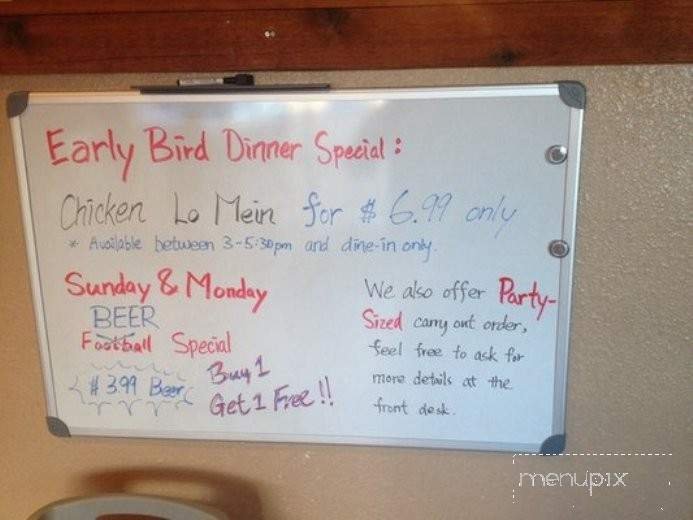 Early Bird Dinner Special :
Chicken Lo Mein for $ 6.99 only
* Available between 3-5:30pm and dine-in only.
Sunday & Monday
BEER
Football Special
$ 3.99 Beer
Buy 1
Get 1 Free !!
We also offer Party-
Sized carry out order,
feel free to ask for
more details at the
front desk.
menupix